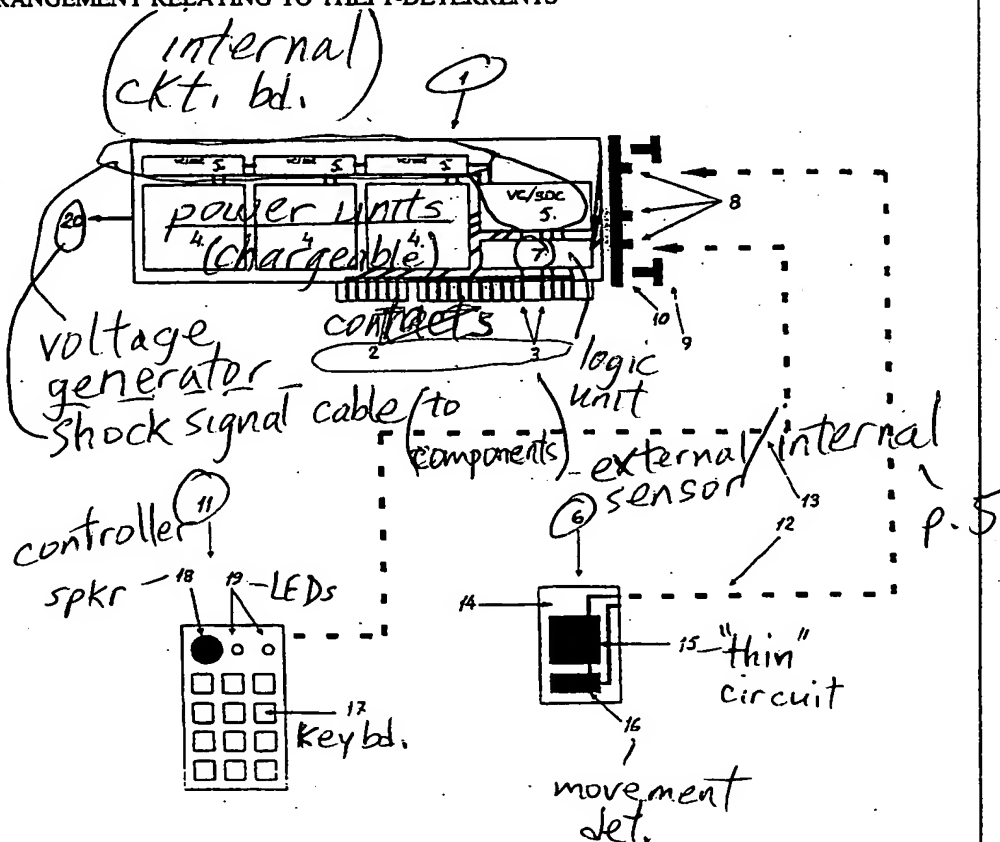 RANGEMENT RELATING TO THEFT-DETERRENTS
(internal
ckt. bd.)
1
5. 5. 5.
VC/SDC
5.
20
power units
4. 4 4.
(chargeable)
7
8
contacts
2
3
10
9
voltage
generator
logic
unit
shock signal cable (to
components)
external/internal
sensor
13
12
p. 5
controller 11
6
spkr - 18 19 - LEDs
14
15 - "thin"
circuit
17
Keybd.
16
movement
det.